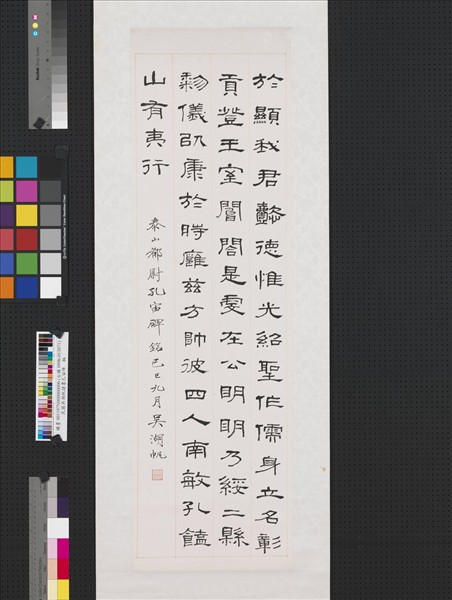 於顯我君懿德惟光紹聖作儒身立名彰
貢登王室閽閣是虔在公明明乃綏二縣
黎儀以康於時廱茲方帥彼四人南畝孔饁
山有夷行
泰山都尉孔宙碑銘己巳九月吳湖帆